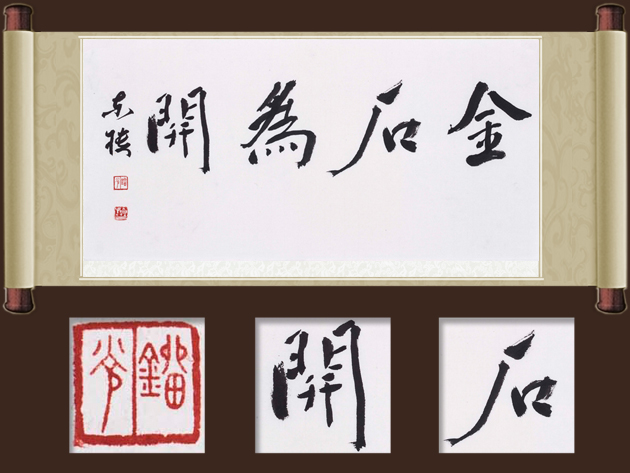 金石為開
開
石